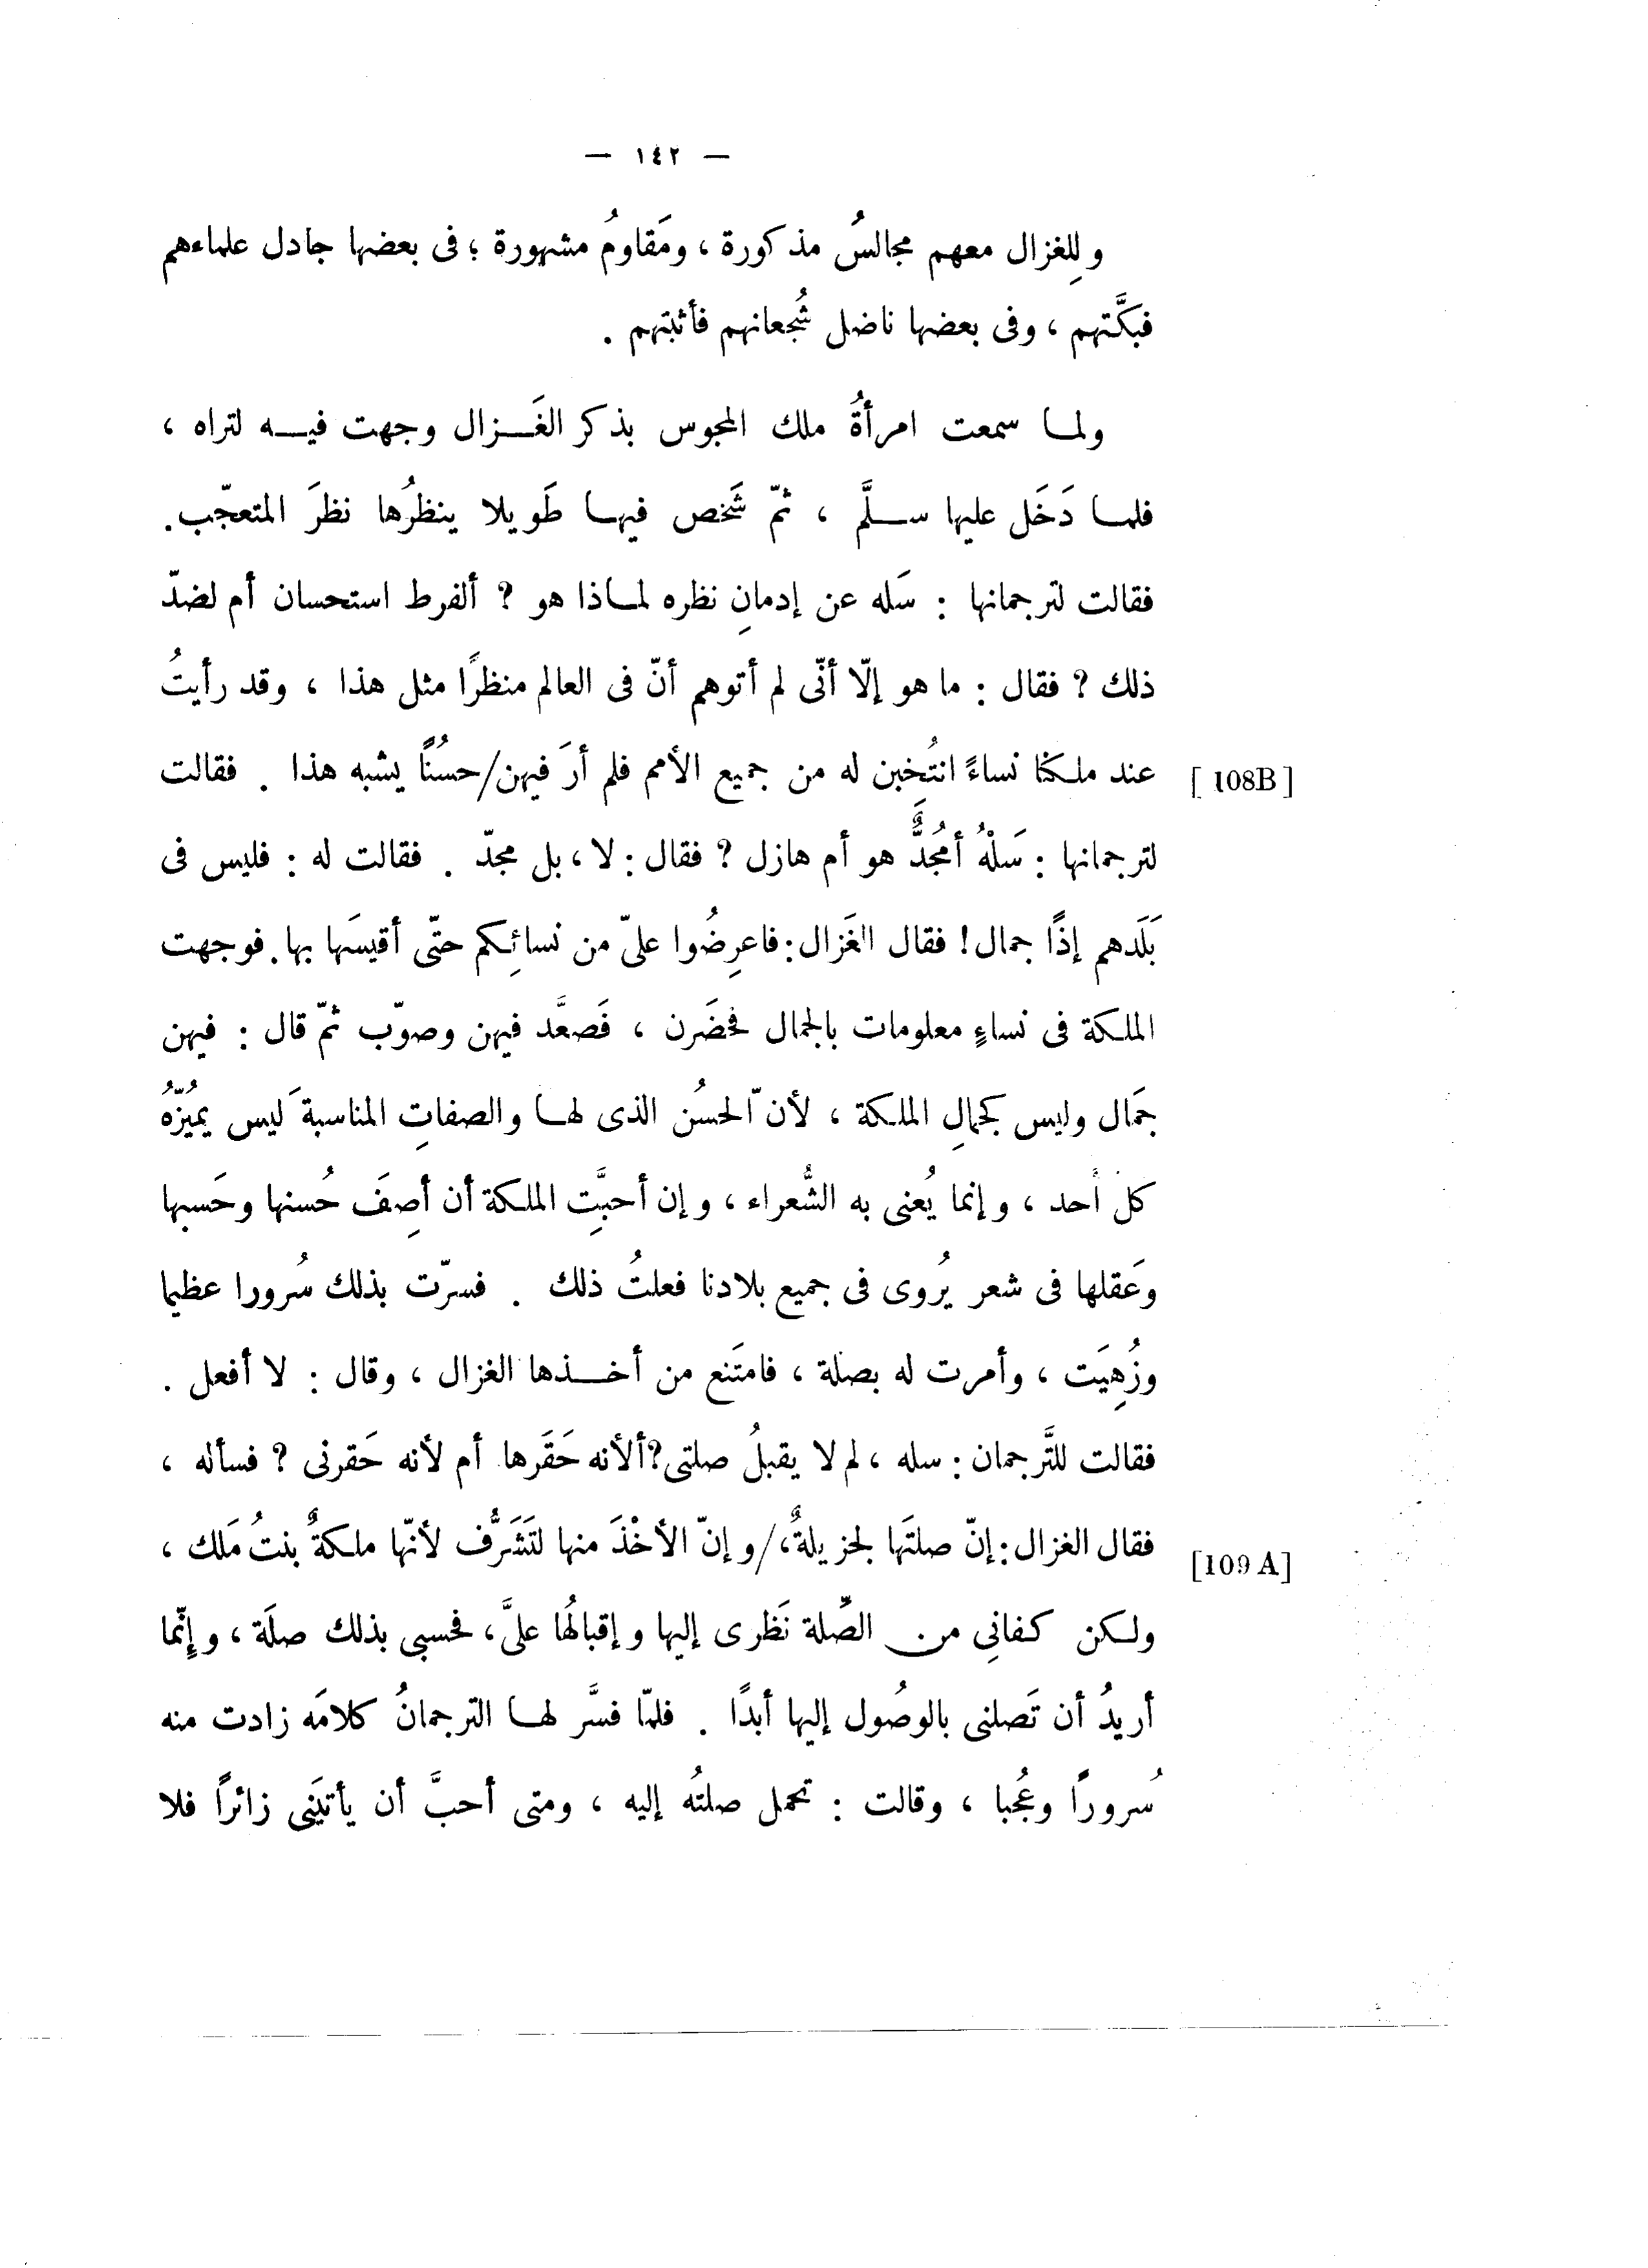 — ١٤٢ —
وللِغزال معهم مجالسُ مذكورة ، ومَقاومُ مشهورة ؛ فى بعضها جادل علماءهم
فبكَّتهم ، وفى بعضها ناضل شُجعانهم فأثبتهم .
ولما سمعت امرأةُ ملك المجوس بذكر الغَزال وجهت فيه لتراه ،
فلما دَخَل عليها سلَّم ، ثمّ شَخص فيها طَويلا ينظرُها نظرَ المتعجّب .
فقالت لترجمانها : سَله عن إدمانِ نظره لماذا هو ؟ ألفرط استحسان أم لضدّ
ذلك ؟ فقال : ما هو إلّا أنّى لم أتوهم أنّ فى العالم منظرًا مثل هذا ، وقد رأيتُ
عند ملكنا نساءً انتُخِبن له من جميع الأمم فلم أرَ فيهن/حسُنًا يشبه هذا . فقالت [108B]
لترجمانها : سَلْهُ أمُجِدٌّ هو أم هازل ؟ فقال : لا ، بل مجدّ . فقالت له : فليس فى
بَلَدهم إذًا جمال ! فقال الغَزال : فاعرِضُوا علىّ من نسائِكم حتّى أقيسَها بها . فوجهت
الملكة فى نساءٍ معلومات بالجمال فحضَرن ، فَصعَّد فيهن وصوّب ثمّ قال : فيهن
جمَال وليس كجمالِ الملكة ، لأنّ الحسُن الذى لها والصفاتِ المناسبة َليس يميُزّهُ
كل أحد ، وإنما يُعنى به الشُّعراء ، وإن أحبَّتِ الملكة أن أصِفَ حُسنها وحَسبها
وعَقلها فى شعر يُروى فى جميع بلادنا فعلتُ ذلك . فسرّت بذلك سُرورا عظيما
وزُهِيَت ، وأمرت له بصلة ، فامتَنع من أخذها الغزال ، وقال : لا أفعل .
فقالت للتَّرجمان : سله ، لم لا يقبلُ صلتى ؟ ألأنه حَقَرها أم لأنه حَقرنى ؟ فسأله ،
فقال الغزال : إنّ صلتَها لجزيلةٌ ،/وإنّ الأخْذَ منها لتَشَرُّف لأنّها ملكةٌ بنتُ مَلك ، [109 A]
ولكن كفانِى من الصِّلة نَظرى إليها وإقبالُها علىَّ ، فحسبى بذلك صلَة ، وإنّما
أريدُ أن تَصلنى بالوصُول إليها أبدًا . فلمّا فسَّر لها الترجمانُ كلامَه زادت منه
سُرورًا وعُجبا ، وقالت : تحمل صلتُه إليه ، ومتى أحبَّ أن يأتيَنى زائرًا فلا